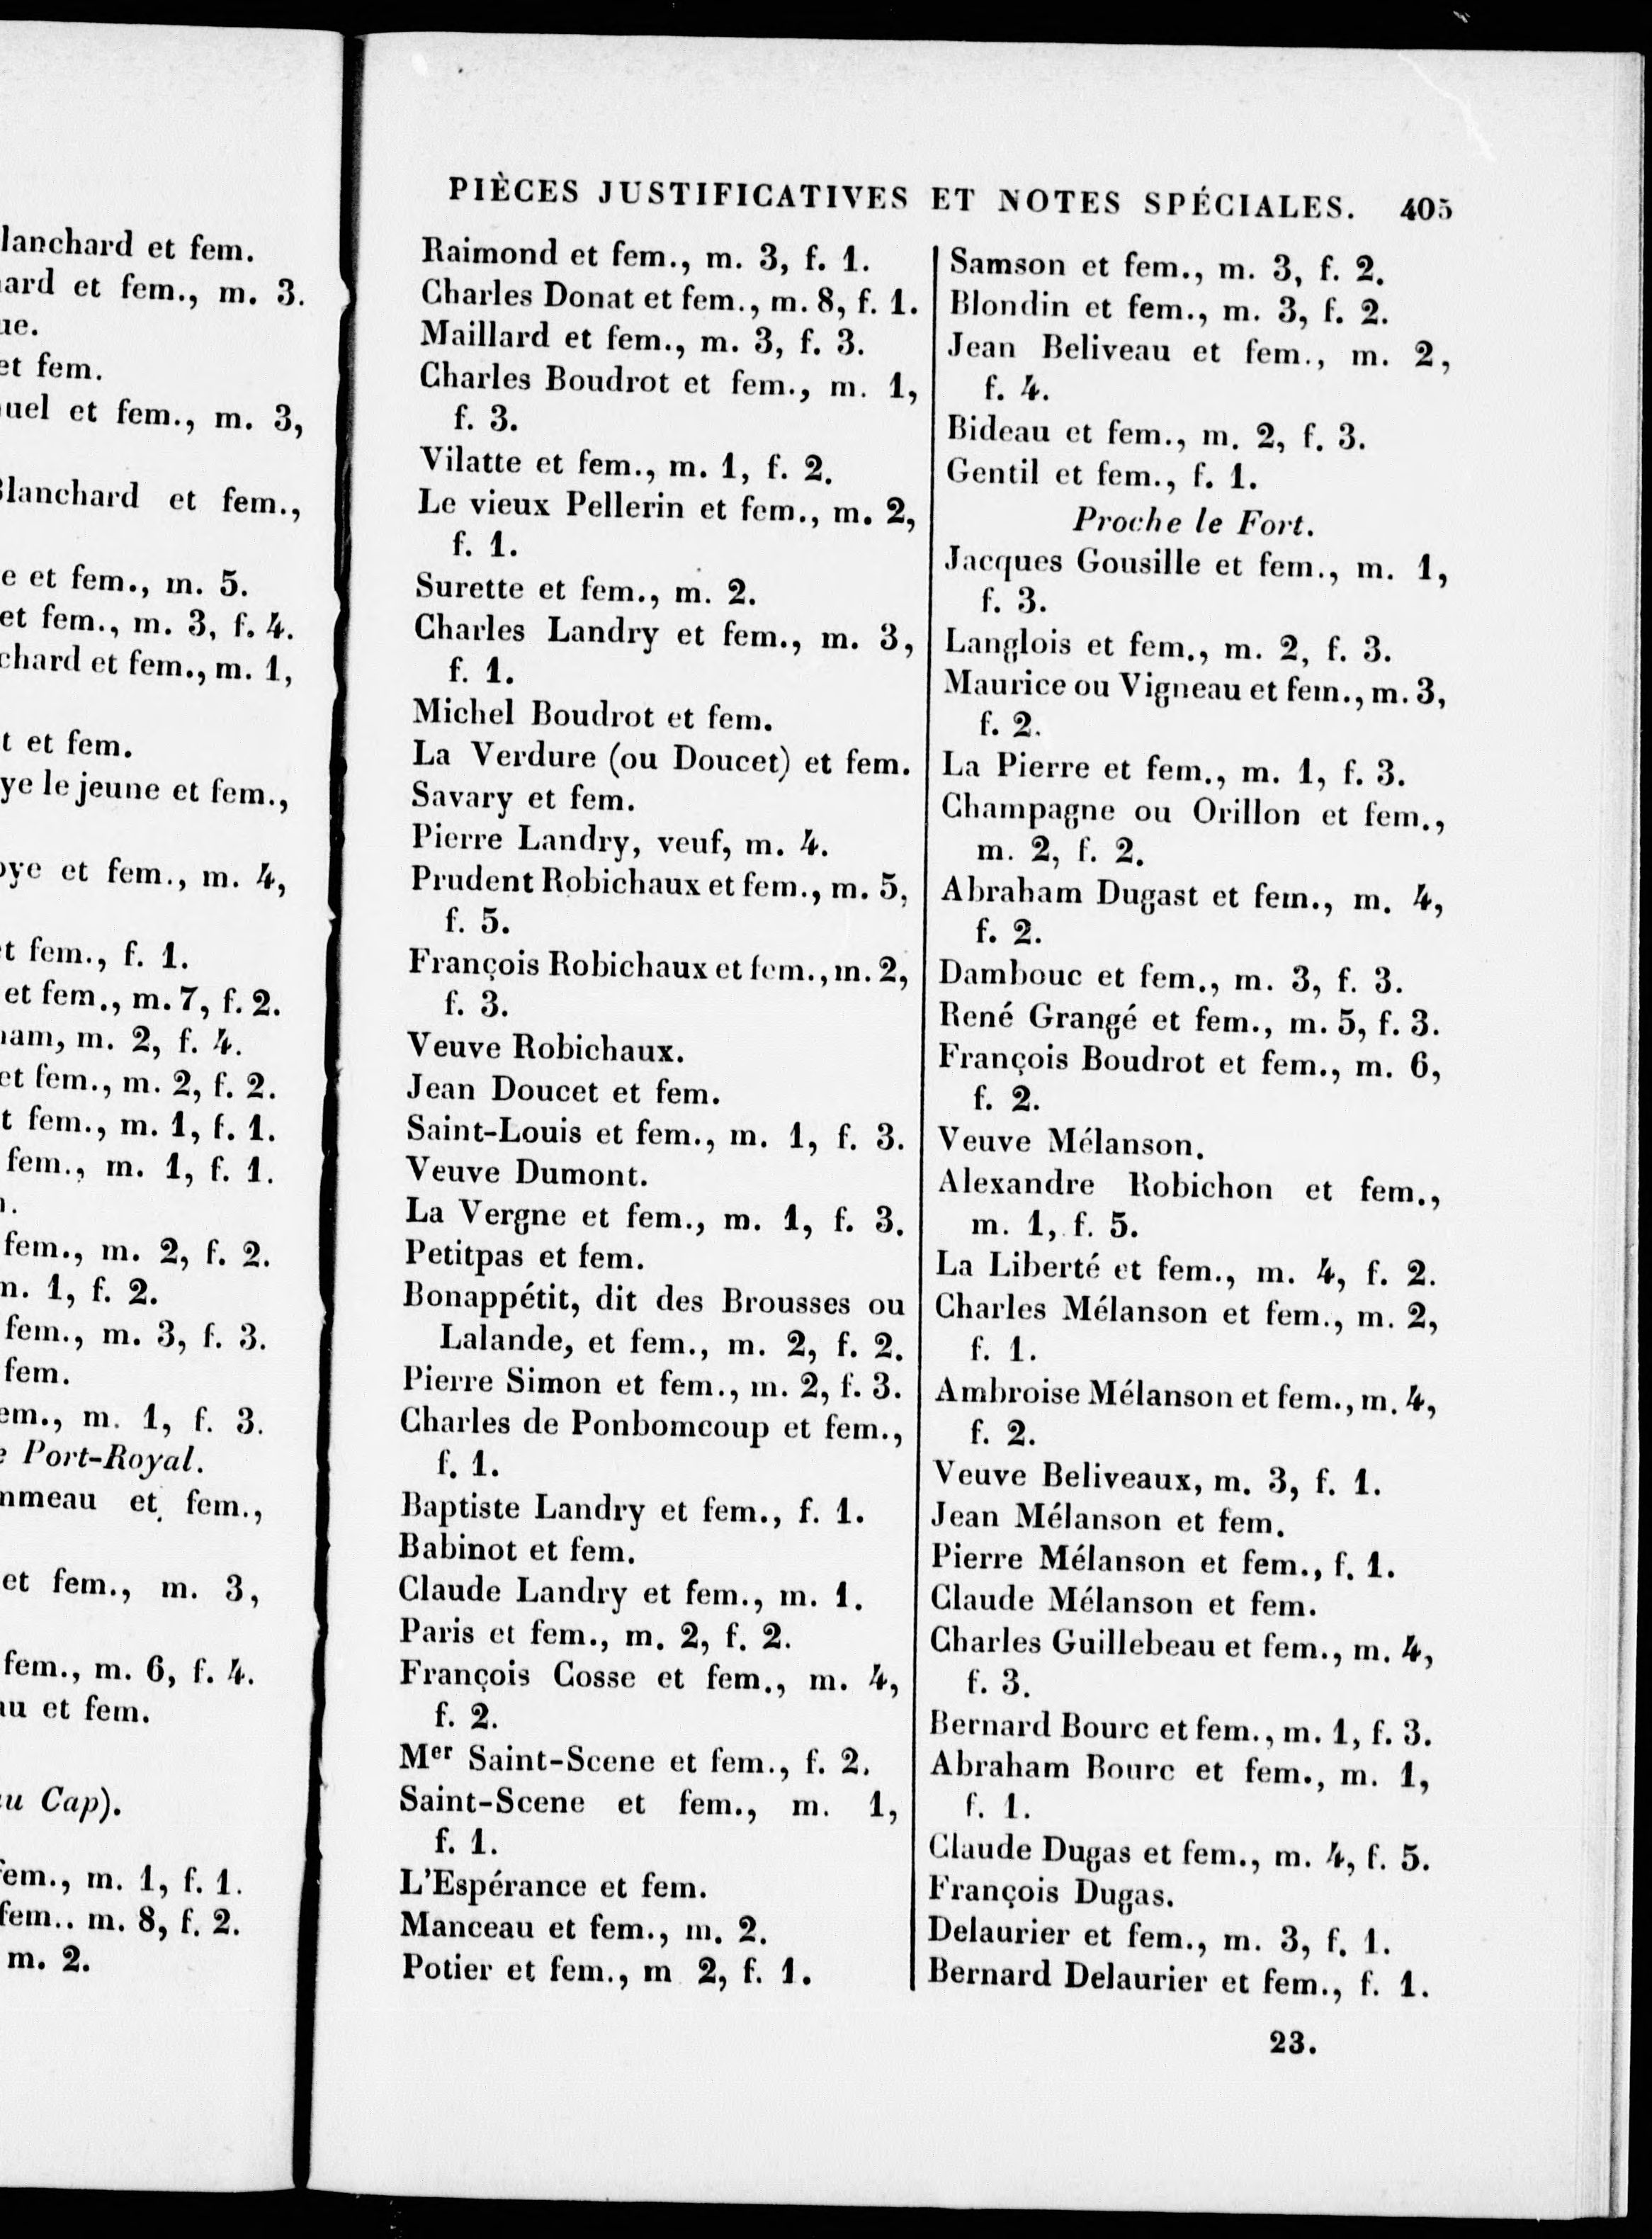 lanchard et fem.
ard et fem., m. 3.
ue.
et fem.
uel et fem., m. 3,
lanchard et fem.,
e et fem., m. 5.
et fem., m. 3, f. 4.
chard et fem., m. 1,
t et fem.
ye le jeune et fem.,
oye et fem., m. 4,
et fem., f. 1.
et fem., m. 7, f. 2.
ham, m. 2, f. 4.
et fem., m. 2, f. 2.
t fem., m. 1, f. 1.
fem., m. 1, f. 1.
fem., m. 2, f. 2.
m. 1, f. 2.
fem., m. 3, f. 3.
fem.
em., m. 1, f. 3.
e Port-Royal.
mmeau et fem.,
et fem., m. 3,
fem., m. 6, f. 4.
au et fem.
au Cap).
fem., m. 1, f. 1.
fem.. m. 8, f. 2.
m. 2.
PIÈCES JUSTIFICATIVES ET NOTES SPÉCIALES. 405
Raimond et fem., m. 3, f. 1.
Charles Donat et fem., m. 8, f. 1.
Maillard et fem., m. 3, f. 3.
Charles Boudrot et fem., m. 1,
f. 3.
Vilatte et fem., m. 1, f. 2.
Le vieux Pellerin et fem., m. 2,
f. 1.
Surette et fem., m. 2.
Charles Landry et fem., m. 3,
f. 1.
Michel Boudrot et fem.
La Verdure (ou Doucet) et fem.
Savary et fem.
Pierre Landry, veuf, m. 4.
Prudent Robichaux et fem., m. 5,
f. 5.
François Robichaux et fem., m. 2,
f. 3.
Veuve Robichaux.
Jean Doucet et fem.
Saint-Louis et fem., m. 1, f. 3.
Veuve Dumont.
La Vergne et fem., m. 1, f. 3.
Petitpas et fem.
Bonappétit, dit des Brousses ou
Lalande, et fem., m. 2, f. 2.
Pierre Simon et fem., m. 2, f. 3.
Charles de Ponbomcoup et fem.,
f. 1.
Baptiste Landry et fem., f. 1.
Babinot et fem.
Claude Landry et fem., m. 1.
Paris et fem., m. 2, f. 2.
François Cosse et fem., m. 4,
f. 2.
Mer Saint-Scene et fem., f. 2.
Saint-Scene et fem., m. 1,
f. 1.
L'Espérance et fem.
Manceau et fem., m. 2.
Potier et fem., m 2, f. 1.
Samson et fem., m. 3, f. 2.
Blondin et fem., m. 3, f. 2.
Jean Beliveau et fem., m. 2,
f. 4.
Bideau et fem., m. 2, f. 3.
Gentil et fem., f. 1.
Proche le Fort.
Jacques Gousille et fem., m. 1,
f. 3.
Langlois et fem., m. 2, f. 3.
Maurice ou Vigneau et fem., m. 3,
f. 2.
La Pierre et fem., m. 1, f. 3.
Champagne ou Orillon et fem.,
m. 2, f. 2.
Abraham Dugast et fem., m. 4,
f. 2.
Dambouc et fem., m. 3, f. 3.
René Grangé et fem., m. 5, f. 3.
François Boudrot et fem., m. 6,
f. 2.
Veuve Mélanson.
Alexandre Robichon et fem.,
m. 1, f. 5.
La Liberté et fem., m. 4, f. 2.
Charles Mélanson et fem., m. 2,
f. 1.
Ambroise Mélanson et fem., m. 4,
f. 2.
Veuve Beliveaux, m. 3, f. 1.
Jean Mélanson et fem.
Pierre Mélanson et fem., f. 1.
Claude Mélanson et fem.
Charles Guillebeau et fem., m. 4,
f. 3.
Bernard Bourc et fem., m. 1, f. 3.
Abraham Bourc et fem., m. 1,
f. 1.
Claude Dugas et fem., m. 4, f. 5.
François Dugas.
Delaurier et fem., m. 3, f. 1.
Bernard Delaurier et fem., f. 1.
23.